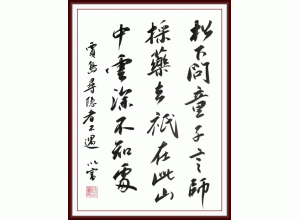 松下问童子言師
採藥去祇在此山
中雲深不知處
賈島尋隱者不遇